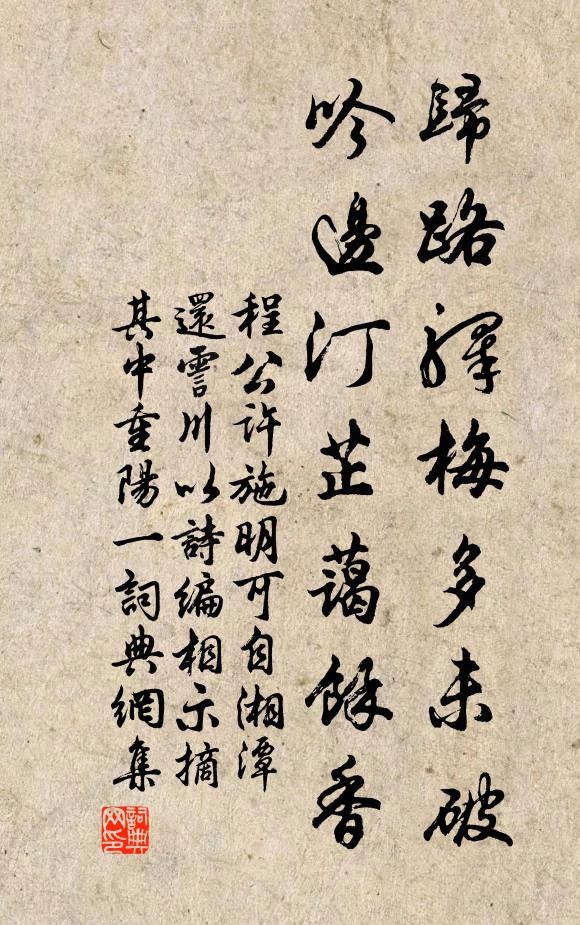 歸路驛梅多未破
吟邊汀芷藹餘香
程公許施明可自湘潭
還霅川以詩編相示摘
其中重陽一詞典網集
詞典网印